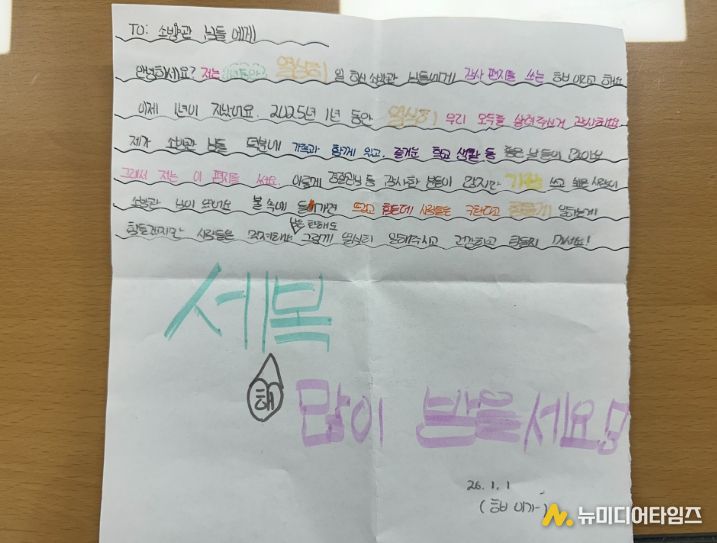 TO: 소방관 님들에게
안녕하세요? 저는 열심히 일 하신 소방관 님들에게 감사 편지를 쓰는 라고 해요.
이제 1년이 지났어요. 2025년 1년 동안 열심히 우리 모두를 살려주셔서 감사해요.
제가 소방관 님들 덕분에 가족과 함께 있고, 즐거운 학교 생활 등 좋은 날들이
그래서 저는 이 편지를 써요. 이렇게 경찰관님 등 감사한 분들이 많지만 가장 쓰고 싶은 사람이
소방관 님이 뜨거운 불 속에 들어가면 뜨겁고 힘든데 사람들을 구한다고 힘들게
힘들겠지만 사람들을 그렇게 열심히 일해주시고 건강하고 마세요!
세복
해
많이 받을세요!
26. 1. 1
뉴미디어타임즈